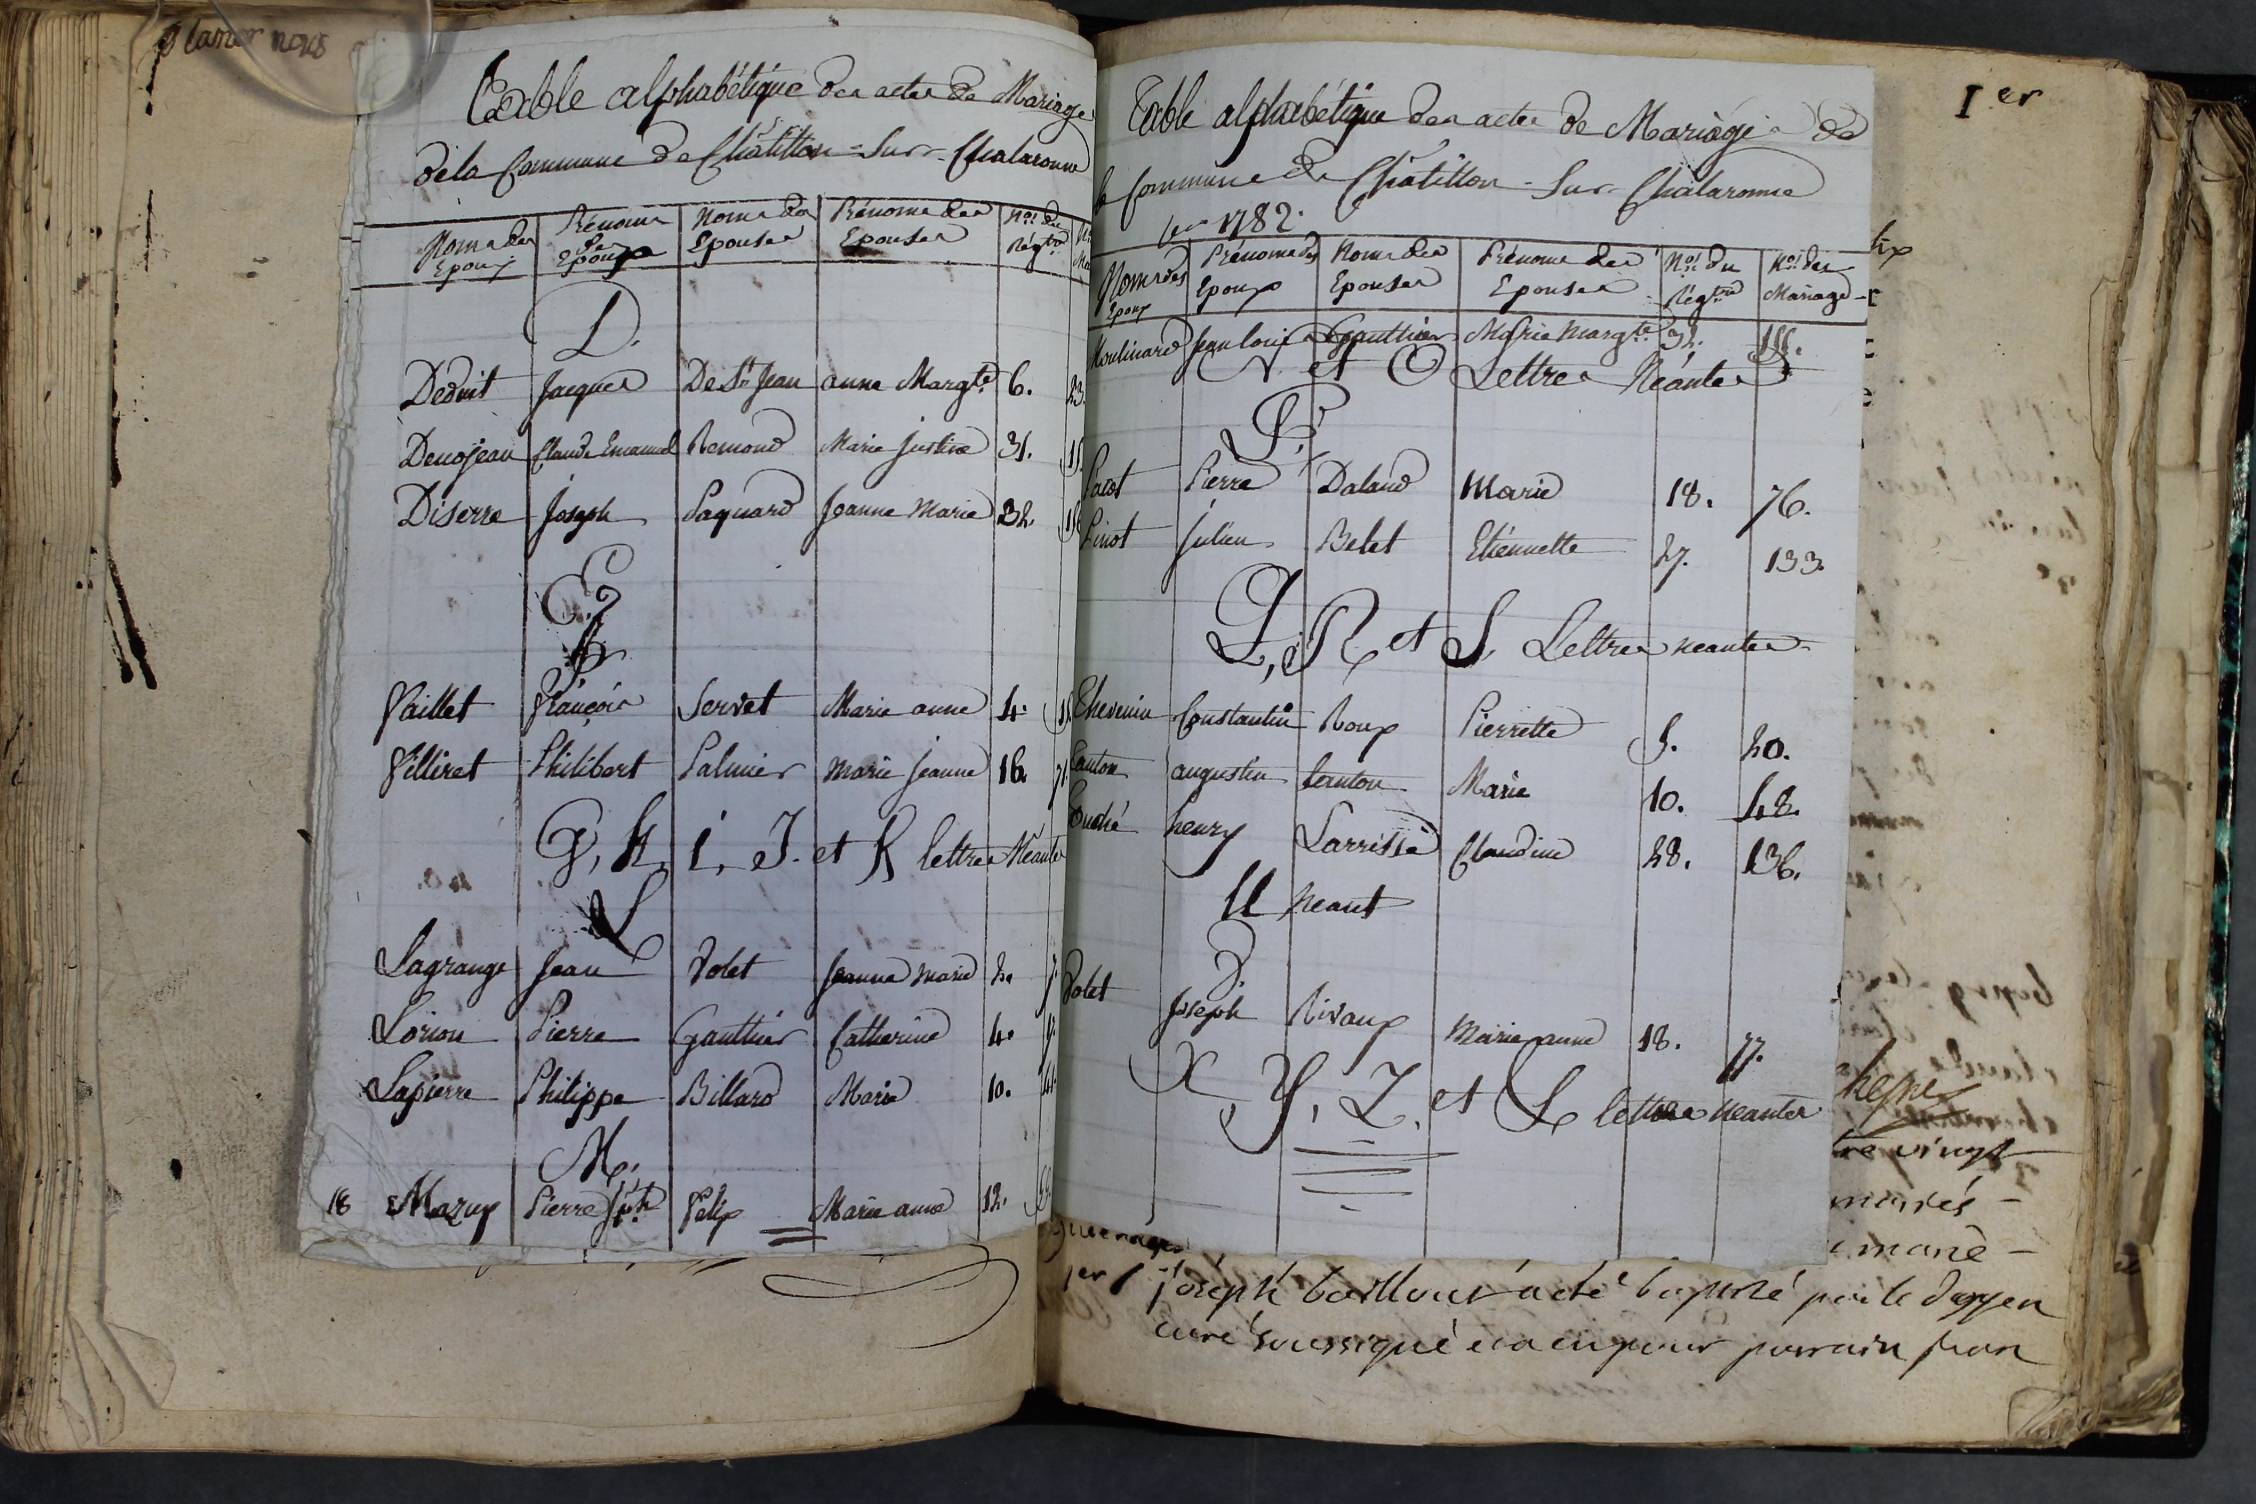 nous
Table alphabétique des actes de Mariage
de la Commune de Châtillon-Sur-Chalaronne
Noms des Epoux Prénoms des Epoux Noms des Epouses Prénoms des Epouses Nos du Régtre
D.
Deduit Jacques De St Jean anne Margte 6. 23.
Denojean Claude Emanuel Remond Marie Justine 31.
Diserre Joseph Paquard Jeanne Marie 32.
E,
F
Faillet François Servet Marie anne 4.
Filliret Philibert Palmier Marie Jeanne 16. 71.
G, H, i, J. et K lettres Néantes
L
Lagrange Jean Volet Jeanne Marie 2. 7.
Lorion Pierre Gauthier Catherine 4.
Lapierre Philippe Billard Marie 10.
M.
18 Mazuy Pierre Jph Felix Marie anne 12.
Table alphabétique des actes de Mariage de
la Commune de Châtillon-Sur-Chalaronne
1782.
Noms des Epoux Prénoms des Epoux Noms des Epouses Prénoms des Epouses Nos du Régtre Nos des Mariages
Moulinard Jean Louis Gauthier Marie Margte 32.
N. et O Lettres Néantes
P.
Pacot Pierre Daland Marie 18. 76.
Pinot Julien Belet Etiennette 27. 133.
Q, R et S, Lettres neantes
Thevenin Constantin Roux Pierrette 5. 20.
Tanton augustin tanton Marie 10. 48.
Tuché henry Larrissé Claudine 28. 136.
U neant
V.
Volet Joseph Rivaux Marie anne 18. 77.
X, Y, Z. et & lettres neantes
1er
lix
tre vingt
mariés -
marié -
1er joseph a été baptisé par le doyen
curé soussigné parrain